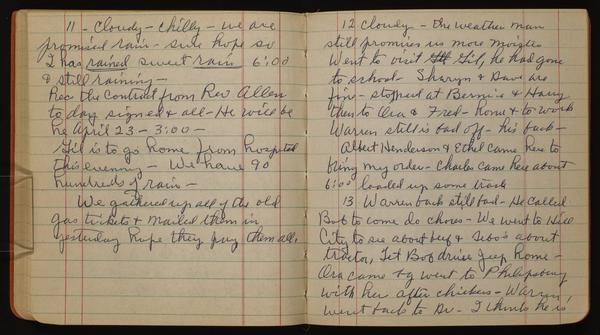 11 - Cloudy - chilly - we are
promised rain - sure hope so
I has rained sweet rain 6:00
& still raining -
Rec the contract from Rev Allen
to day signed & all - He will be
he April 23 - 3:00 -
Gil is to go home from hospital
this evening - We have 90
hundreds of rain -
We gathered up all of the old
gas tickets & mailed them in
yesterday hope they pay them all.
12 Cloudy - the weather man
still promises us more moisture
Went to visit Gil, he had gone
to school Sharyn & Dave are
fin - stopped at Bernie & Harry
then to Ora & Fred - home & to work
Warren still is bad off - his back -
Albert Henderson & Ethel came here to
bring my order - Charles came here about
6:00 loaded up some
13 Warren back still bad - He called
Bob to come do chores - We went to Hill
City to see about beef & about
tractor, Let Bob drive Jeep home -
Ora came & g went to Philipsburg
with her after chickens - Warren
went back to Dr - I think he is